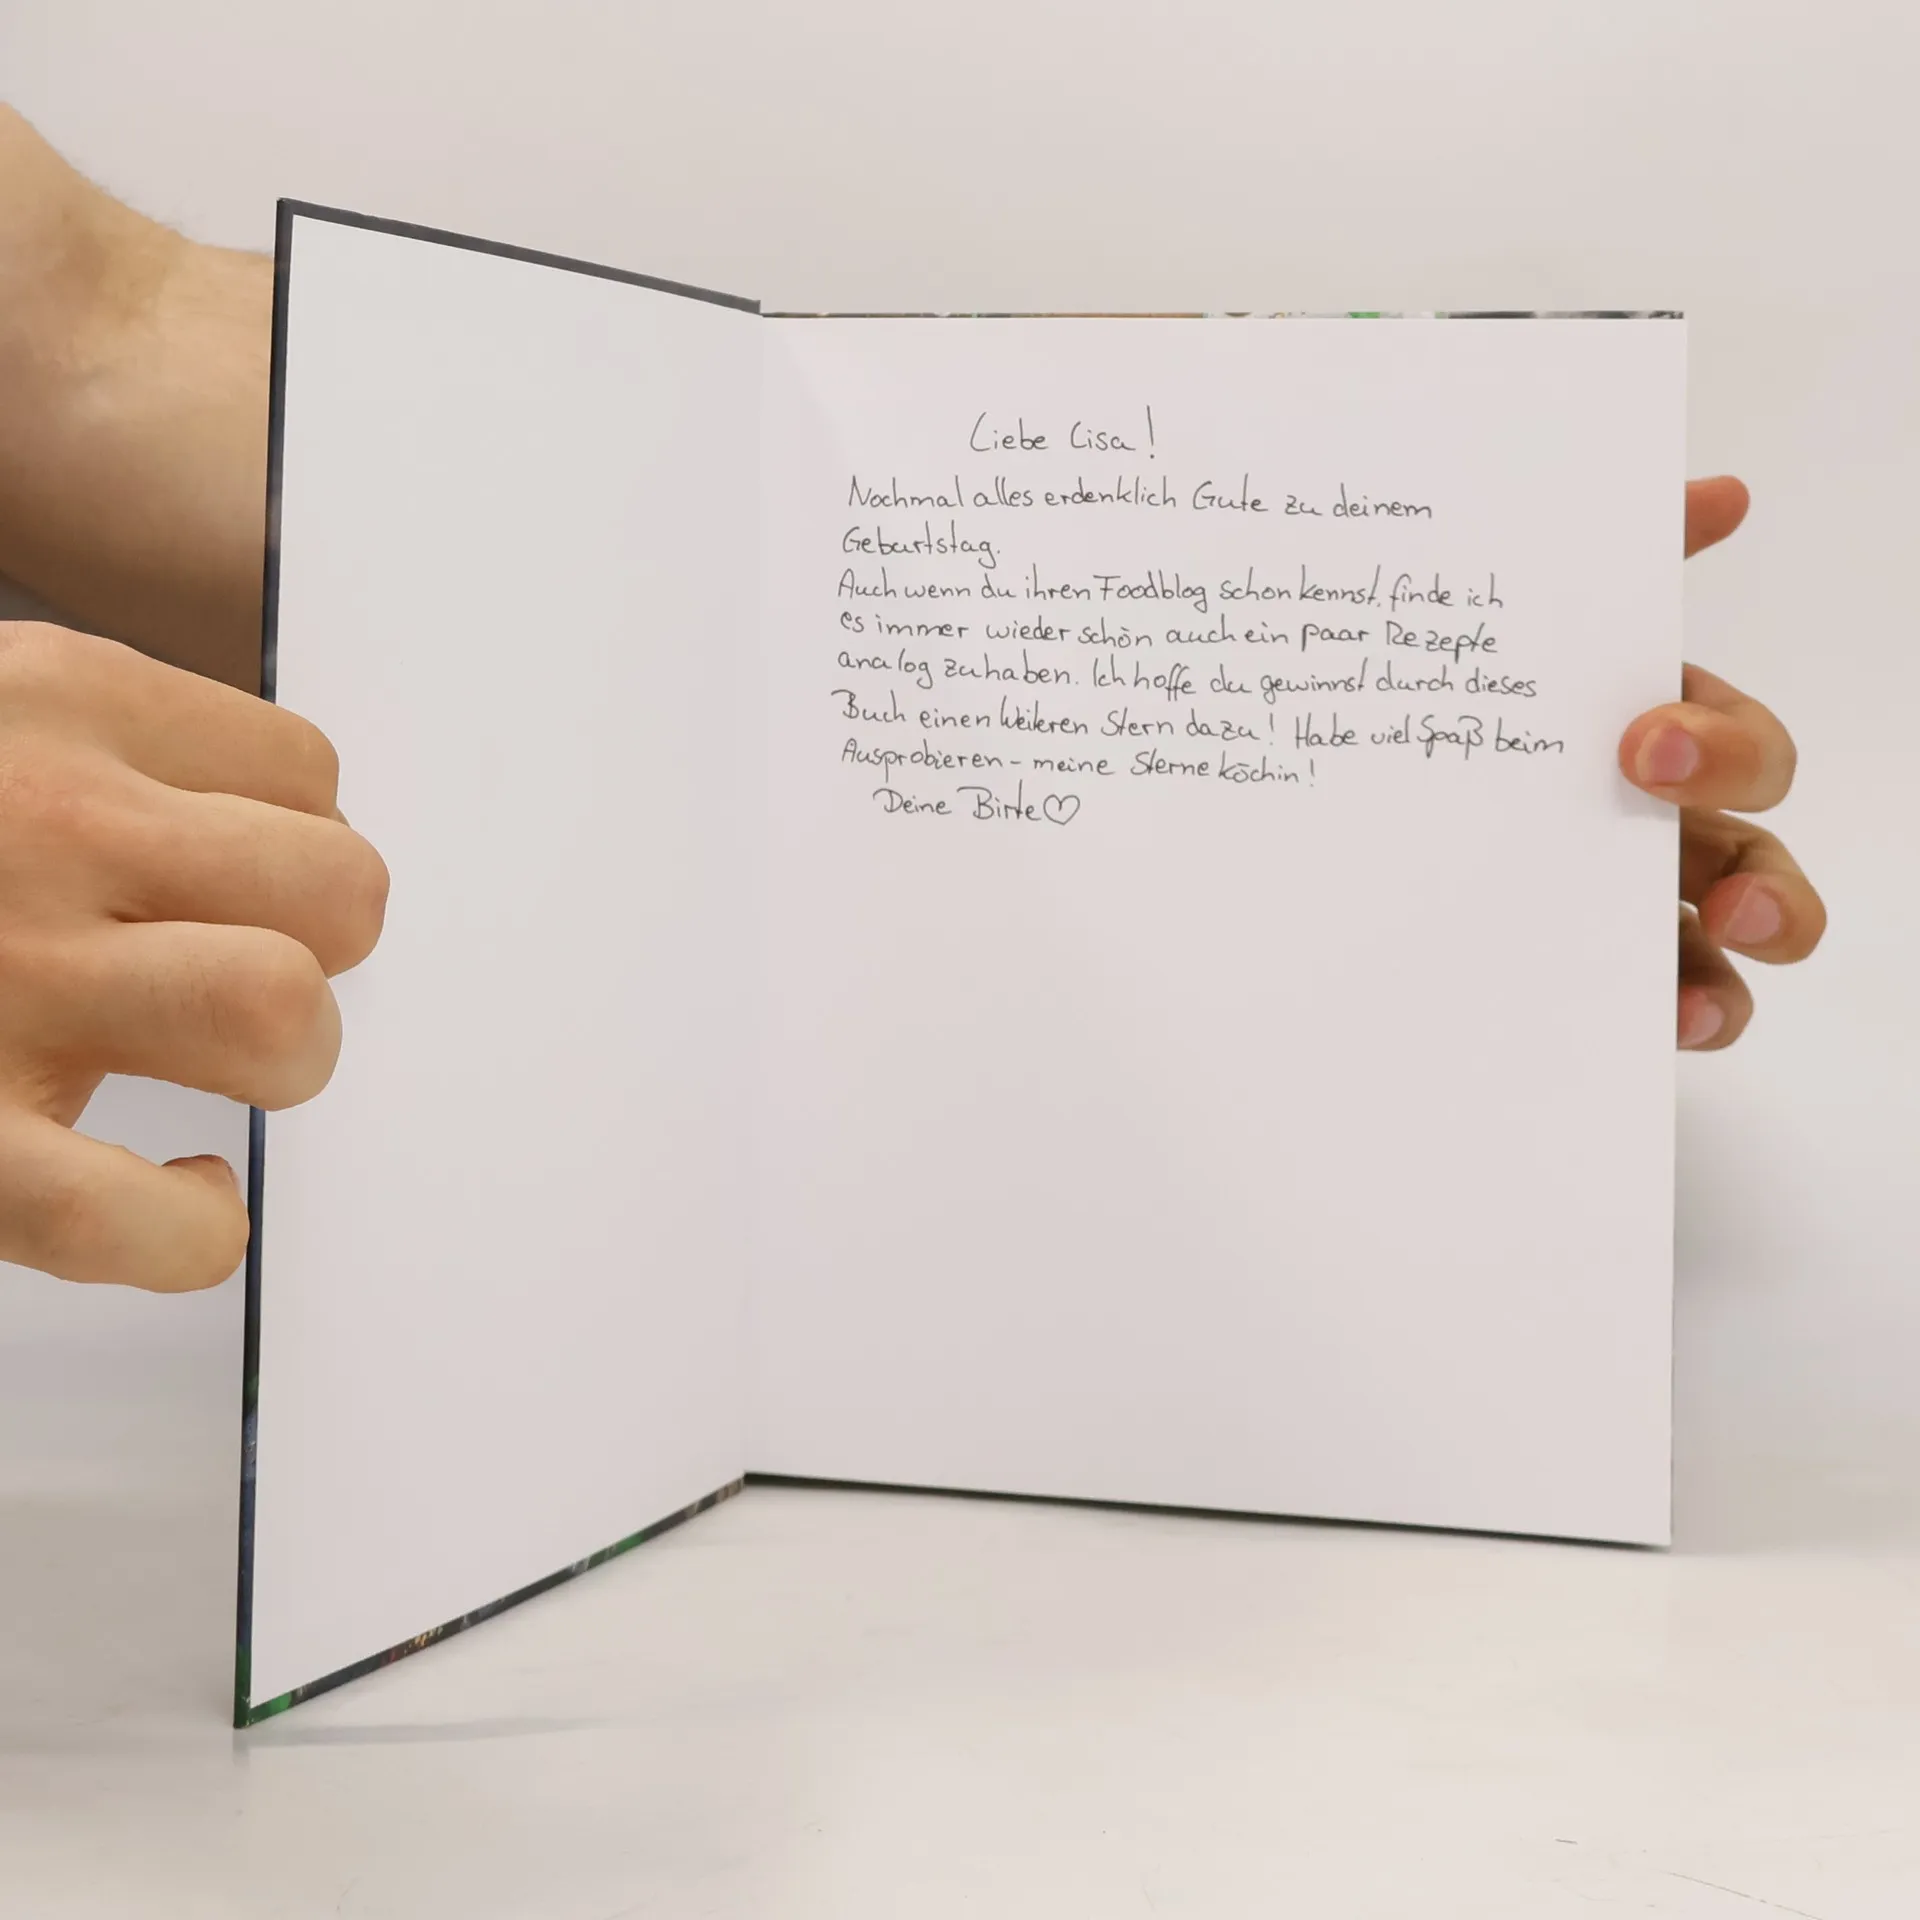 Liebe Lisa!
Nochmal alles erdenklich Gute zu deinem
Geburtstag.
Auch wenn du ihren Foodblog schon kennst, finde ich
es immer wieder schön auch ein paar Rezepte
analog zu haben. Ich hoffe du gewinnst durch dieses
Buch einen weiteren Stern dazu! Habe viel Spaß beim
Ausprobieren - meine Sterneköchin!
Deine Birte♡